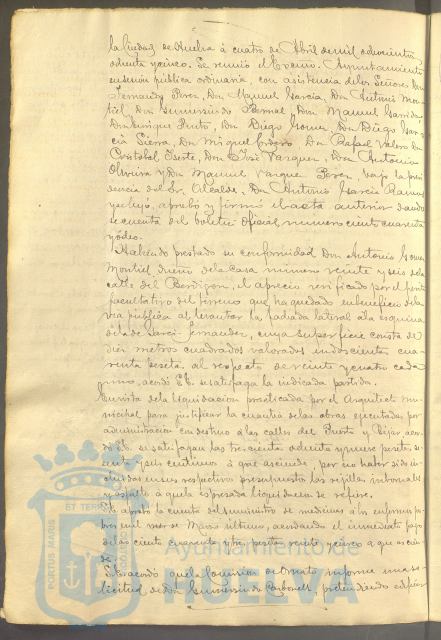 la Ciudad de Huelva á cuatro de Abril de mil ochocientos
ochenta y cinco. Se reunió el Excmo. Ayuntamiento
en sesión pública ordinaria, con asistencia de los Señores Don
Fernando Perez, Don Manuel García, Don Antonio Mon
tiel, Don Gumersindo Bernal, Don Manuel Garrido
Don Enrique Prieto, Don Diego Gomez, Don Diego Gar
cía Sierra, Don Miguel Cordero, Don Rafael Valero Don
Cristobal Iserte, Don José Vazquez, Don Antonio
Oliveira y Don Manuel Vazquez Perez, bajo la presi
dencia del Sr. Alcalde, Don Antonio García Ramos
se leyó, aprobó y firmó el acta anterior dando
se cuenta del boletin oficial, numero ciento cuarenta
y ocho.
Habiendo prestado su conformidad Don Antonio Gomez
Montiel dueño de la casa numero veinte y seis de la
calle del Berdigon, el aprecio verificado por el perito
facultativo del terreno que ha quedado en beneficio de la
via pública al levantar la fachada lateral á la esquina
de la de Garci-Fernandez, cuya superficie consta de
diez metros cuadrados valorados en doscientas cua
renta pesetas, al respecto de veinte y cuatro cada
uno, acordó S.E. se satisfaga la indicada partida.
En vista de la liquidacion practicada por el Arquitecto mu
nicipal para justificar la cuantía de las obras ejecutadas por
administracion con destino a las calles del Puerto y Bejar acor
dó S.E. se satisfagan las trescientas ochenta y nueve pesetas, se
senta y seis centimos á que asciende, por no haber sido in
cluidas en sus respectivos presupuestos las rejillas
y asfalto á que la espresada liquidacion se refiere.
Se aprobó la cuenta del suministro de medicinas a los enfermos po
bres en el mes de Marzo último, acordando el inmediato pago
de las ciento cuarenta y tres pesetas veinte y cinco a que ascien
de
Se acordó que la Comision de Ornato informe una so
licitud de don Gumersindo Carbonell, pretendiendo edificar
PORTUS MARIS
ET TERRAE
CUSTODIA
Ayuntamiento de
HUELVA